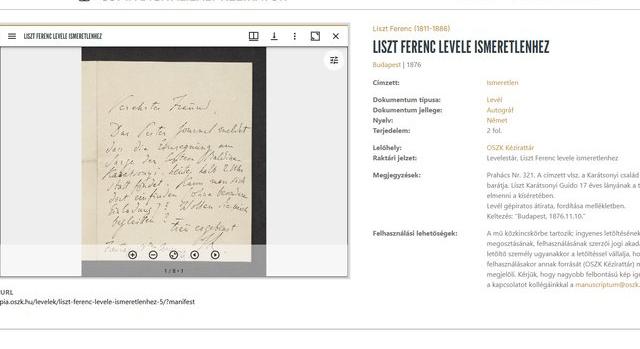 LISZT FERENC LEVELE ISMERETLENHEZ
Verehrter Freund,
Das Pester Journal meldet
das die Einsegnung am
Sarge der
Karatsonyi, heute, halb 2 Uhr
statt findet. Kann man sich
dort einfinden ohne besondere
Einladung?? Wollen Sie mich
begleiten?
Treu ergebenst
1 / 8 • 1
URL
pia.oszk.hu/levelek/liszt-ferenc-levele-ismeretlenhez-5/?manifest
Liszt Ferenc (1811-1886)
LISZT FERENC LEVELE ISMERETLENHEZ
Budapest | 1876
Címzett: Ismeretlen
Dokumentum típusa: Levél
Dokumentum jellege: Autográf
Nyelv: Német
Terjedelem: 2 fol.
Lelőhely: OSZK Kézirattár
Raktári jelzet: Levelestár, Liszt Ferenc levele ismeretlenhez
Megjegyzések: Prahács Nr. 321. A címzett vlsz. a Karátsonyi család
barátja. Liszt Karátsonyi Guido 17 éves lányának a t
elmenni a kíséretében.
Levél gépiratos átirata, fordítása mellékletben.
Keltezés: "Budapest, 1876.11.10."
Felhasználási lehetőségek: A mű közkincskörbe tartozik; ingyenes letöltésének
megosztásának, felhasználásának szerzői jogi akad
letöltő személy ugyanakkor a letöltéssel vállalja, ho
felhasználásakor annak forrását (OSZK Kézirattár) m
megjelöli. Kérjük, hogy nagyobb felbontású kép igé
a kapcsolatot kollégáinkkal a manuscriptum@oszk.